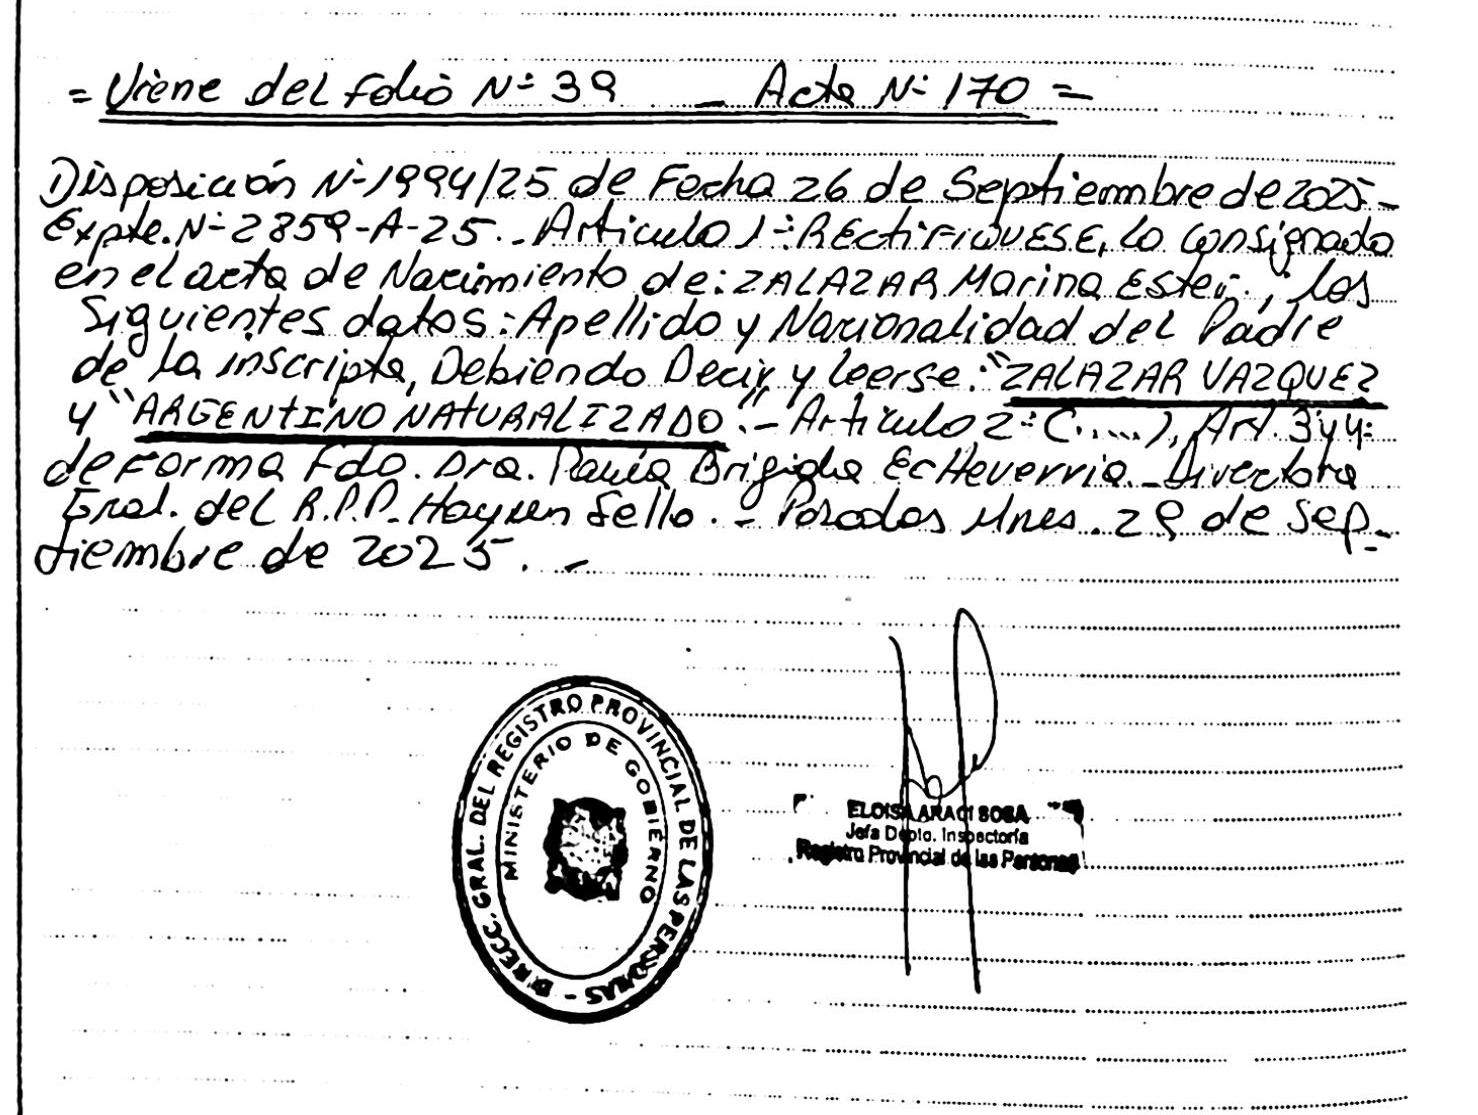 = Viene del folio Nº 39 _ Acta Nº 170 =
Disposición Nº 1994/25 de Fecha 26 de Septiembre de 2025-
Expte. Nº 2859-A-25.- Artículo 1º: RECtiFiQUESE, lo consignado
en el acta de Nacimiento de: ZALAZAR Marina Ester., los
Siguientes datos: Apellido y Nacionalidad del Padre
de la inscripta, Debiendo Decir y leerse: "ZALAZAR VAZQUEZ
y "ARGENTINO NATURALIZADO".- Artículo 2º: (.....), Art. 3 y 4:
de Forma Fdo. Dra. Paula Brigida EcHeverria - Directora
Gral. del R.P.P. Hay un Sello. - Posadas Mnes. 29 de Sep-
tiembre de 2025. -
DIRECC. GRAL. DEL REGISTRO PROVINCIAL DE LAS PERSONAS -
MINISTERIO DE GOBIERNO
ELOISA ARACI SOSA
Jefa Depto. Inspectoría
Registro Provincial de las Personas